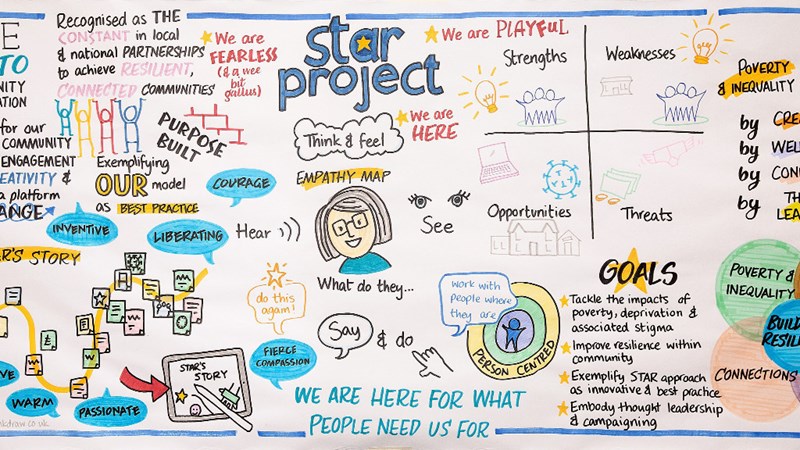 TO
Recognised as THE
CONSTANT in local
& national PARTNERSHIPS
to achieve RESILIENT,
CONNECTED COMMUNITIES
We are
FEARLESS
(& a wee
bit
gallus)
star
project
We are PLAYFUL
We are
HERE
Strengths
Weaknesses
Opportunities
Threats
POVERTY
& INEQUALITY
by
by
by
by
for our
COMMUNITY
ENGAGEMENT
&
a platform
PURPOSE
BUILT
Exemplifying
OUR model
as BEST PRACTICE
COURAGE
INVENTIVE
LIBERATING
Think & feel
EMPATHY MAP
Hear
See
What do they...
Say
& do
do this
again!
work with
people where
they are
PERSON CENTRED
STORY
STAR'S
STORY
WARM
PASSIONATE
FIERCE
COMPASSION
WE ARE HERE FOR WHAT
PEOPLE NEED US FOR
GOALS
Tackle the impacts of
poverty, deprivation &
associated stigma
Improve resilience within
community
Exemplify STAR approach
as innovative & best practice
Embody thought leadership
& campaigning
POVERTY &
INEQUALITY
CONNECTIONS